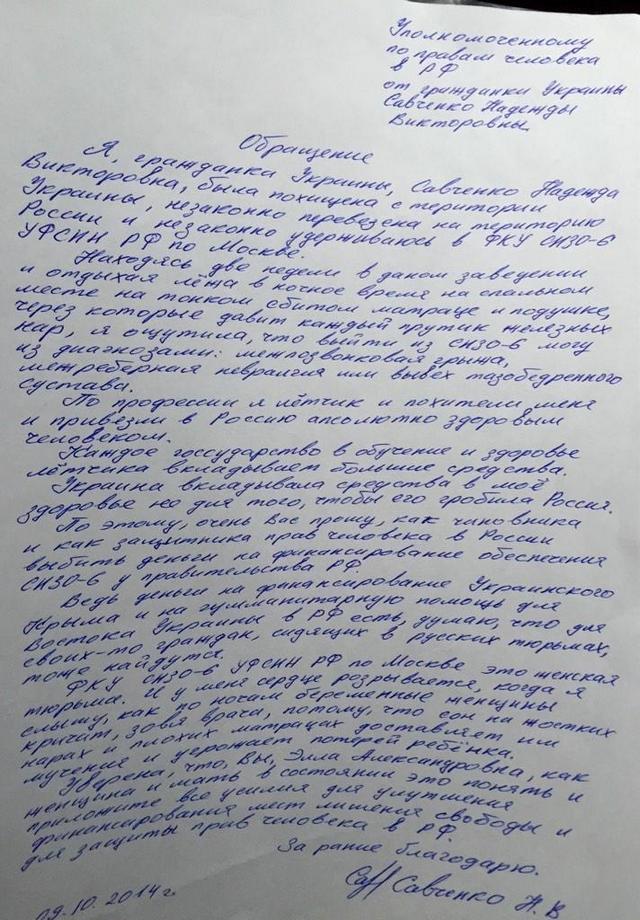 Уполномоченному
по правам человека
в РФ
от гражданки Украины
Савченко Надежды
Викторовны.
Обращение
Я, гражданка Украины, Савченко Надежда
Викторовна, была похищена с територии
Украины, незаконно перевезена на територию
России и незаконно удерживаюсь в ФКУ СИЗО-6
УФСИН РФ по Москве.
Находясь две недели в даном заведении
и отдыхая лёжа в ночное время на спальном
месте на тонком сбитом матраце и подушке,
через которые давит каждый прутик железных
нар, я ощутила, что выйти из СИЗО-6 могу
из диагнозами: межпозвонковая грыжа,
межреберная невралгия или вывех тазобедренного
сустава.
По профессии я лётчик и похители меня
и привезли в Россию апсолютно здоровым
человеком.
Каждое госсударство в обучение и здоровье
лётчика вкладывает большие средства.
Украина вкладывала средства в моё
здоровье не для того, чтобы его гробила Россия.
По этому, очень Вас прошу, как чиновника
и как защитника прав человека в России
выбить деньги на финансирование обеспечения
СИЗО-6 у правительства РФ.
Ведь деньги на финансирование Украинского
Крыма и на гумманитарную помощь для
Востока Украины в РФ есть, думаю, что для
своих-то граждан, сидящих в русских тюрьмах,
тоже найдутся.
ФКУ СИЗО-6 УФСИН РФ по Москве это женская
тюрьма. И у меня сердце розрывается, когда я
слышу, как по ночам беременные женщины
кричат, зовя врача, потому, что сон на жостких
нарах и плохих матрацах доставляет им
мучение и угрожает потерей ребёнка.
Уверена, что, Вы, Элла Александровна, как
женщина и мать в состоянии это понять и
приложите все усилия для улутшения
финансирования мест лишения свободы и
для защиты прав человека в РФ.
За рание благодарю.
Савченко Н. В
09.10.2014 г.